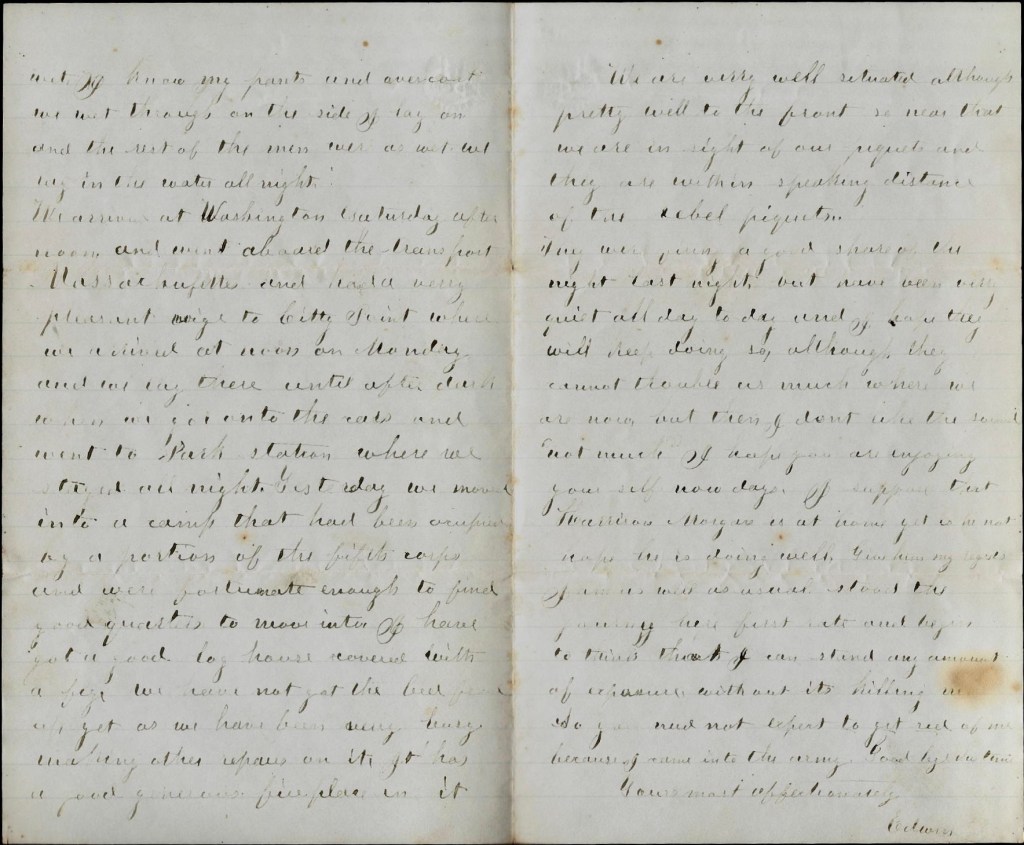 wet. I know my pants and overcoat
were wet through on the side I lay on
and the rest of the men were as wet we
lay in the water all night.
We arrived at Washington Saturday after
noon and went aboard the transport
and had a very
pleasant to Citty Point where
we arived at noon on Monday
and we lay there until after dark
when we got onto the cars and
went to Park station where we
stayed all night. Yesterday we moved
into a camp that had been occupied
by a portion of the fifth corps
and were fortunate enough to find
good quarters to move into I have
got a good log house covered with
a we have not got the bed
up yet as we have been very busy
making other repairs on it, it has
a good generous fireplace in it
We are verry well situated although
pretty well to the front so near that
we are in sight of our piquets and
they are within speaking distence
of the rebel piquets.
They were firing a good share of the
night last night, but have been very
quiet all day to day and I hope they
will keep doing so, although they
cannot trouble us much where we
are now, but then I dont like the sound
"not much" I hope you are enjoying
your self now days. I suppose that
Harrison Morgan is at home yet is he not
hope he is doing well, Give him my regards
I am as well as usual stood the
journey here first rate and begin
to think that I can stand any amount
of exposure without its killing me
So you need not expect to get red of me
because I came into the army. Good bye
Yours most affectionately
Edwin